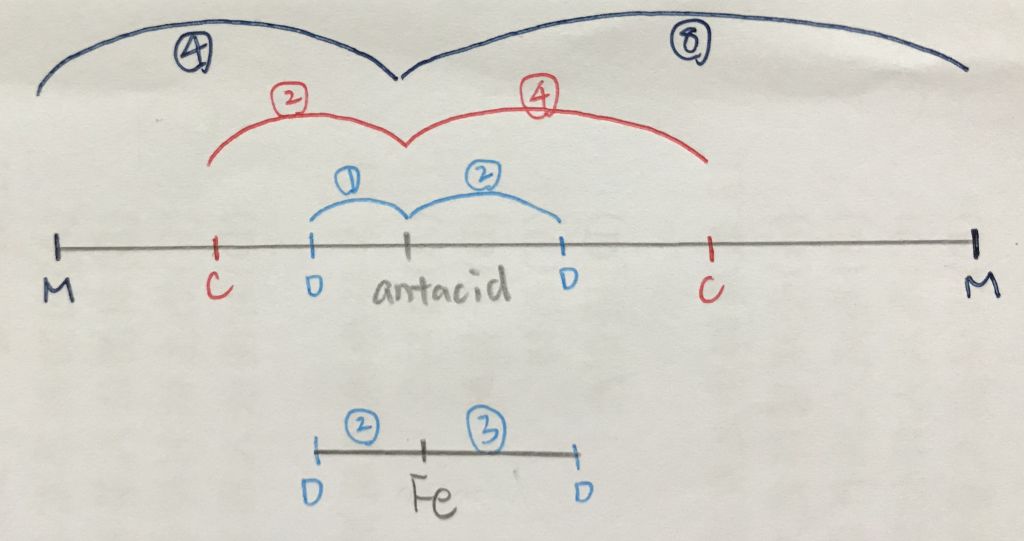 ④ ⑧
② ④
① ②
M C D antacid D C M
② ③
D Fe D